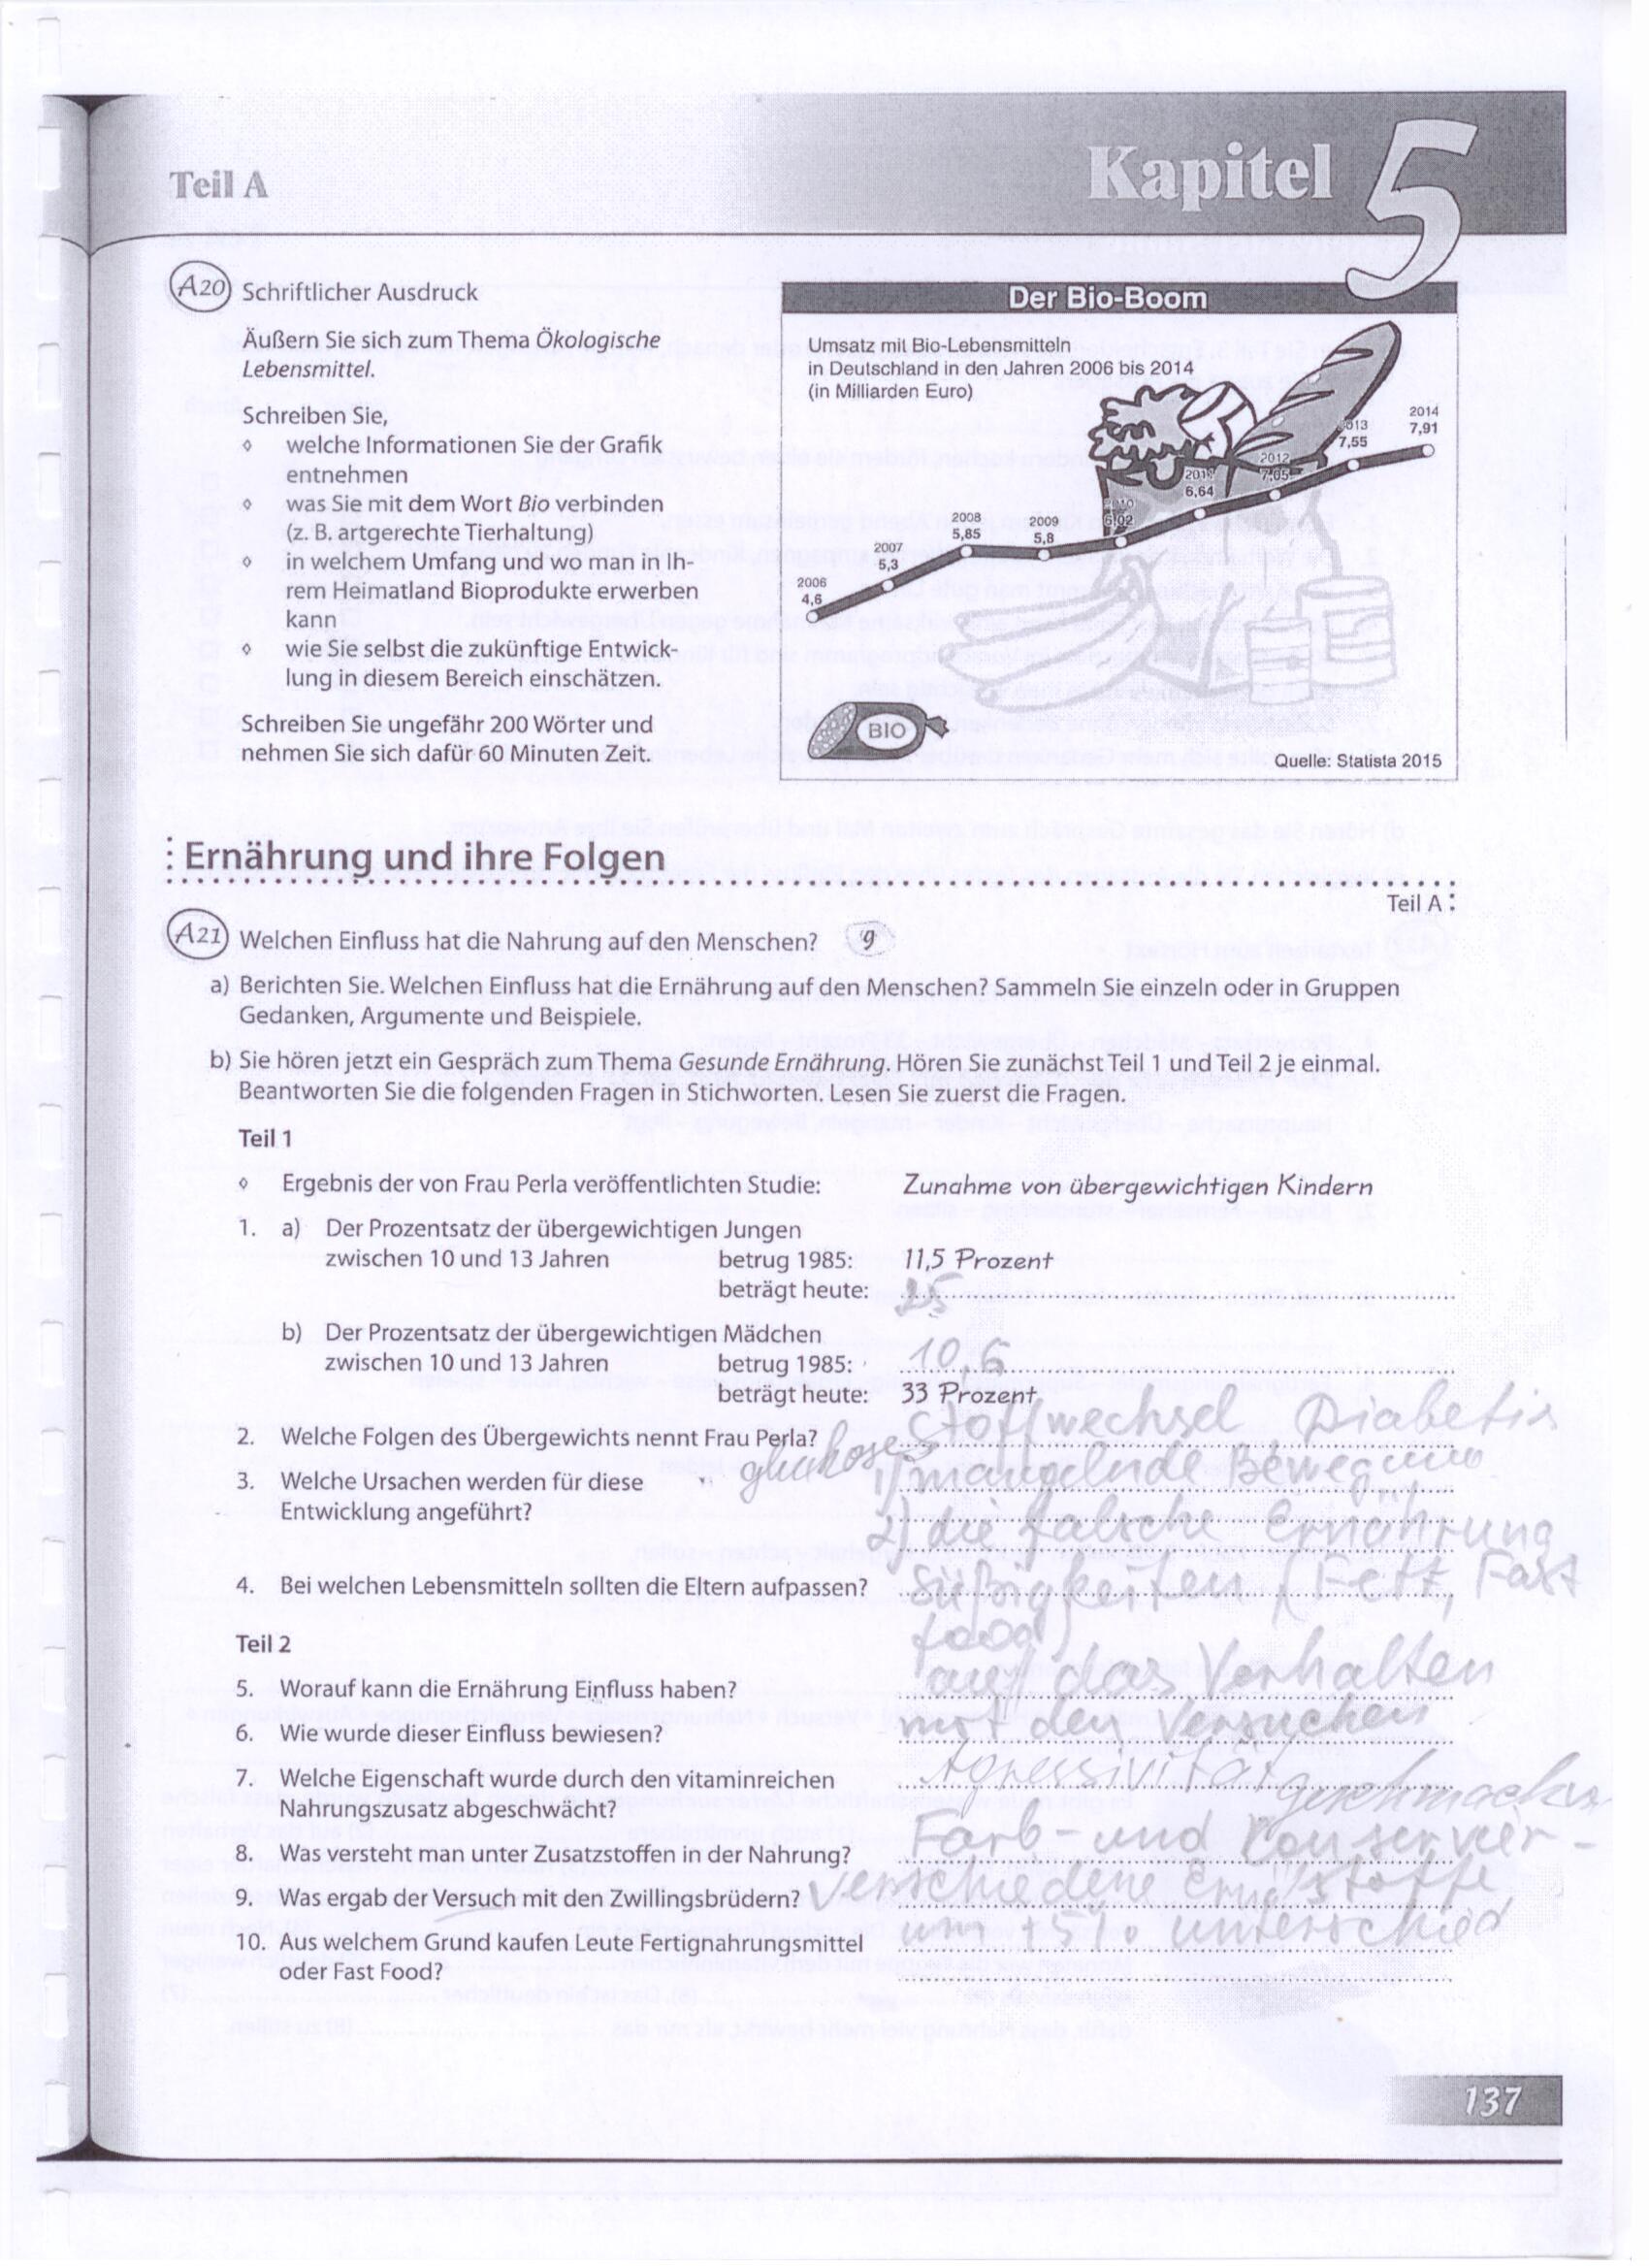 Teil A
Kapitel 5
A20 Schriftlicher Ausdruck
Äußern Sie sich zum Thema Ökologische
Lebensmittel.
Schreiben Sie,
◊ welche Informationen Sie der Grafik
entnehmen
◊ was Sie mit dem Wort Bio verbinden
(z. B. artgerechte Tierhaltung)
◊ in welchem Umfang und wo man in Ih-
rem Heimatland Bioprodukte erwerben
kann
◊ wie Sie selbst die zukünftige Entwick-
lung in diesem Bereich einschätzen.
Schreiben Sie ungefähr 200 Wörter und
nehmen Sie sich dafür 60 Minuten Zeit.
Der Bio-Boom
Umsatz mit Bio-Lebensmitteln
in Deutschland in den Jahren 2006 bis 2014
(in Milliarden Euro)
2006
4,6
2007
5,3
2008
5,85
2009
5,8
2010
6,02
2011
6,64
2012
7,05
2013
7,55
2014
7,91
BIO
Quelle: Statista 2015
Ernährung und ihre Folgen
Teil A
A21 Welchen Einfluss hat die Nahrung auf den Menschen? 9
a) Berichten Sie. Welchen Einfluss hat die Ernährung auf den Menschen? Sammeln Sie einzeln oder in Gruppen
Gedanken, Argumente und Beispiele.
b) Sie hören jetzt ein Gespräch zum Thema Gesunde Ernährung. Hören Sie zunächst Teil 1 und Teil 2 je einmal.
Beantworten Sie die folgenden Fragen in Stichworten. Lesen Sie zuerst die Fragen.
Teil 1
◊ Ergebnis der von Frau Perla veröffentlichten Studie: Zunahme von übergewichtigen Kindern
1. a) Der Prozentsatz der übergewichtigen Jungen
zwischen 10 und 13 Jahren betrug 1985: 11,5 Prozent
beträgt heute: 25
b) Der Prozentsatz der übergewichtigen Mädchen
zwischen 10 und 13 Jahren betrug 1985: 10,6
beträgt heute: 33 Prozent
2. Welche Folgen des Übergewichts nennt Frau Perla? Stoffwechsel Diabetis
3. Welche Ursachen werden für diese 1) mangelnde Bewegung
Entwicklung angeführt? 2) die falsche Ernährung
4. Bei welchen Lebensmitteln sollten die Eltern aufpassen? Süßigkeiten (Fett, Fast
food)
Teil 2
5. Worauf kann die Ernährung Einfluss haben? auf das Verhalten
6. Wie wurde dieser Einfluss bewiesen? mit den Versuchen
7. Welche Eigenschaft wurde durch den vitaminreichen
Nahrungszusatz abgeschwächt? geschmacks
8. Was versteht man unter Zusatzstoffen in der Nahrung? Farb- und Conservier-
9. Was ergab der Versuch mit den Zwillingsbrüdern? verschiedene stoffe
10. Aus welchem Grund kaufen Leute Fertignahrungsmittel unterschied
oder Fast Food?
137